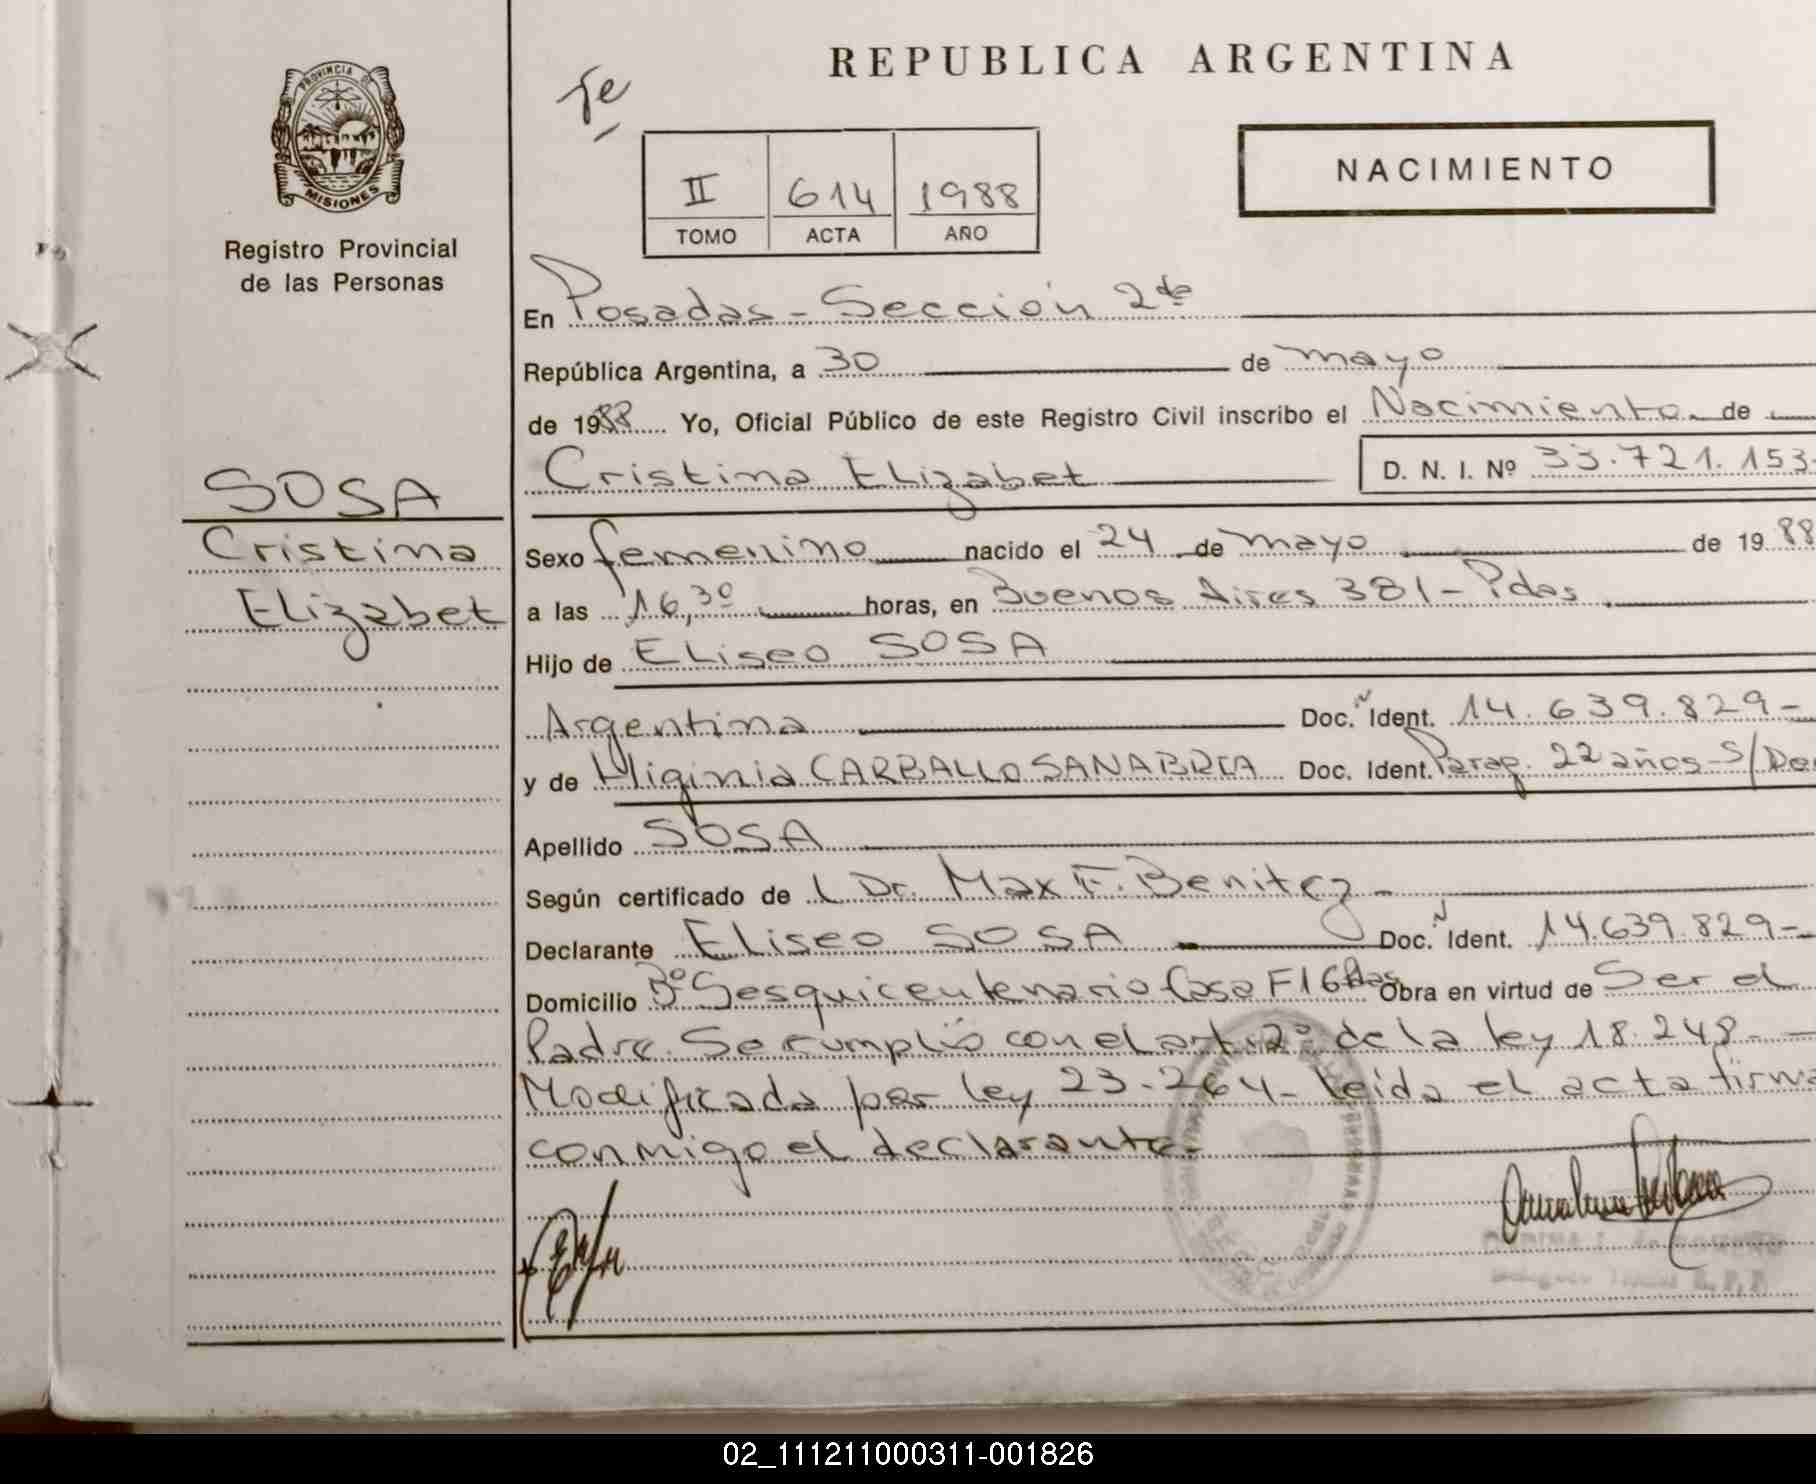 REPUBLICA ARGENTINA
PROVINCIA DE
MISIONES
Registro Provincial
de las Personas
NACIMIENTO
II 614 1988
TOMO ACTA AÑO
En Posadas - Sección 2da
República Argentina, a 30 de mayo
de 1988 Yo, Oficial Público de este Registro Civil inscribo el Nacimiento de
Cristina Elizabet D. N. I. Nº 33.721.153-
SOSA
Cristina
Elizabet
Sexo femenino nacido el 24 de mayo de 1988
a las 16,30 horas, en Buenos Aires 381 - Pdas
Hijo de Eliseo SOSA
Argentina Doc. Ident. 14.639.829-
y de Higinia CARBALLO SANABRIA Doc. Ident. Parag. 22 años - S/Do
Apellido SOSA
Según certificado de l Dr. Max F. Benitez
Declarante Eliseo SOSA Doc. Ident. 14.639.829-
Domicilio Bº Sesquicentenario Casa F16 Pdas Obra en virtud de Ser el
Padre. Se cumplió con el art. 2º de la ley 18.248 -
Modificada por ley 23.264 - leída el acta firma
conmigo el declarante.
02_111211000311-001826